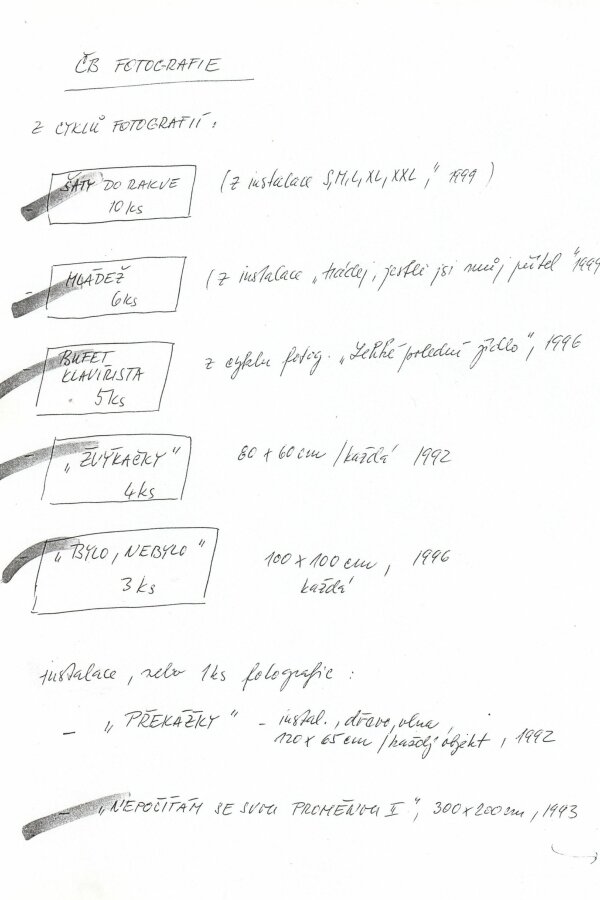 ČB FOTOGRAFIE
Z CYKLŮ FOTOGRAFIÍ:
- ŠATY DO RAKVE (z instalace S,M,L,XL,XXL," 1999)
10 ks
- MLÁDEŽ (z instalace „hádej, jestli jsi můj přítel" 1994
6ks
- BUFET z cyklu fotog. „Lehké polední jídlo", 1996
KLAVÍRISTA
5ks
- „ŽVÝKAČKY" 80 x 60 cm /každá 1992
4ks
- „BYLO, NEBYLO" 100 x 100 cm, 1996
3 ks každá
instalace, nebo 1ks fotografie:
- „PŘEKÁŽKY" - instal., dřevo, vlna
120 x 65 cm /každý objekt, 1992
- „NEPOČÍTÁM SE SVOU PROMĚNOU II", 300 x 200 cm, 1993